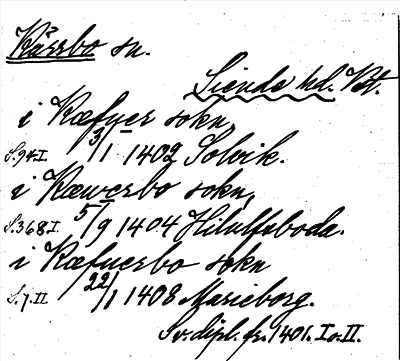 Kärrbo sn.
Siende hd. Vstm.
i Kæfuer sokn,
S.94.I. 3/1 1402 Solvik.
i Kæwerbo sokn,
S.368.I. 5/9 1404 Hilulfsboda.
i Kæfuerbo sokn
S.7.II. 22/1 1408 Marieborg.
Sv. dipl. fr. 1401. I o. II.